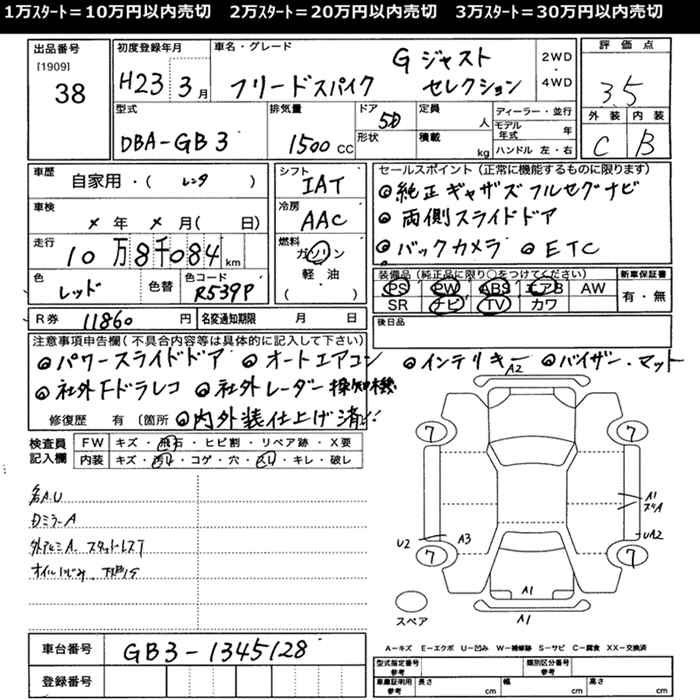 1万ｽﾀｰﾄ＝10万円以内売切　2万ｽﾀｰﾄ＝20万円以内売切　3万ｽﾀｰﾄ＝30万円以内売切
出品番号
[1909]
38
初度登録年月
H23 3月
車名・グレード
フリードスパイク G ジャスト セレクション
2WD・4WD
評価点
3.5
外装 内装
C B
型式
DBA-GB3
排気量
1500 CC
ドア
5D
形状
定員
人
積載
kg
ディーラー・並行
モデル年式 年
ハンドル 左・右
車歴
自家用・(レンタ)
車検
年 月( 日)
走行
10万8千084km
色
レッド
色替
色コード
R539P
シフト
IAT
冷房
AAC
燃料
ガソリン
軽・油
( )
セールスポイント（正常に機能するものに限ります）
◎純正ギャザズフルセグナビ
◎両側スライドドア
◎バックカメラ ◎ETC
装備品（純正品に限り○をつけてください）
PS PW ABS エアB AW
SR ナビ TV カワ
新車保証書
有・無
R券 11860 円
名変通知期限 月 日
後日品
注意事項申告欄（不具合内容等は具体的に記入して下さい）
◎パワースライドドア ◎オートエアコン ◎インテリキー ◎バイザー・マット
◎社外Fドラレコ ◎社外レーダー探知機
修復歴 有（箇所 ◎内外装仕上げ済!!
検査員記入欄
FW キズ・飛石・ヒビ割・リペア跡・X要
内装 キズ・汚れ・コゲ・穴・スレ・キレ・破レ
各A.U
Dミラー A
外アルミA. スタットレス7
A2
7
7
7
7
A1
U2
A3
UA2
A1
A1
スペア
A−キズ E−エクボ U−凹み W−補修跡 S−サビ C−腐食 XX−交換済
車台番号
GB3-1345128
登録番号
型式指定番号 参考
類別区分番号 参考
車庫証明用 参考
長さ cm
幅 cm
高さ cm